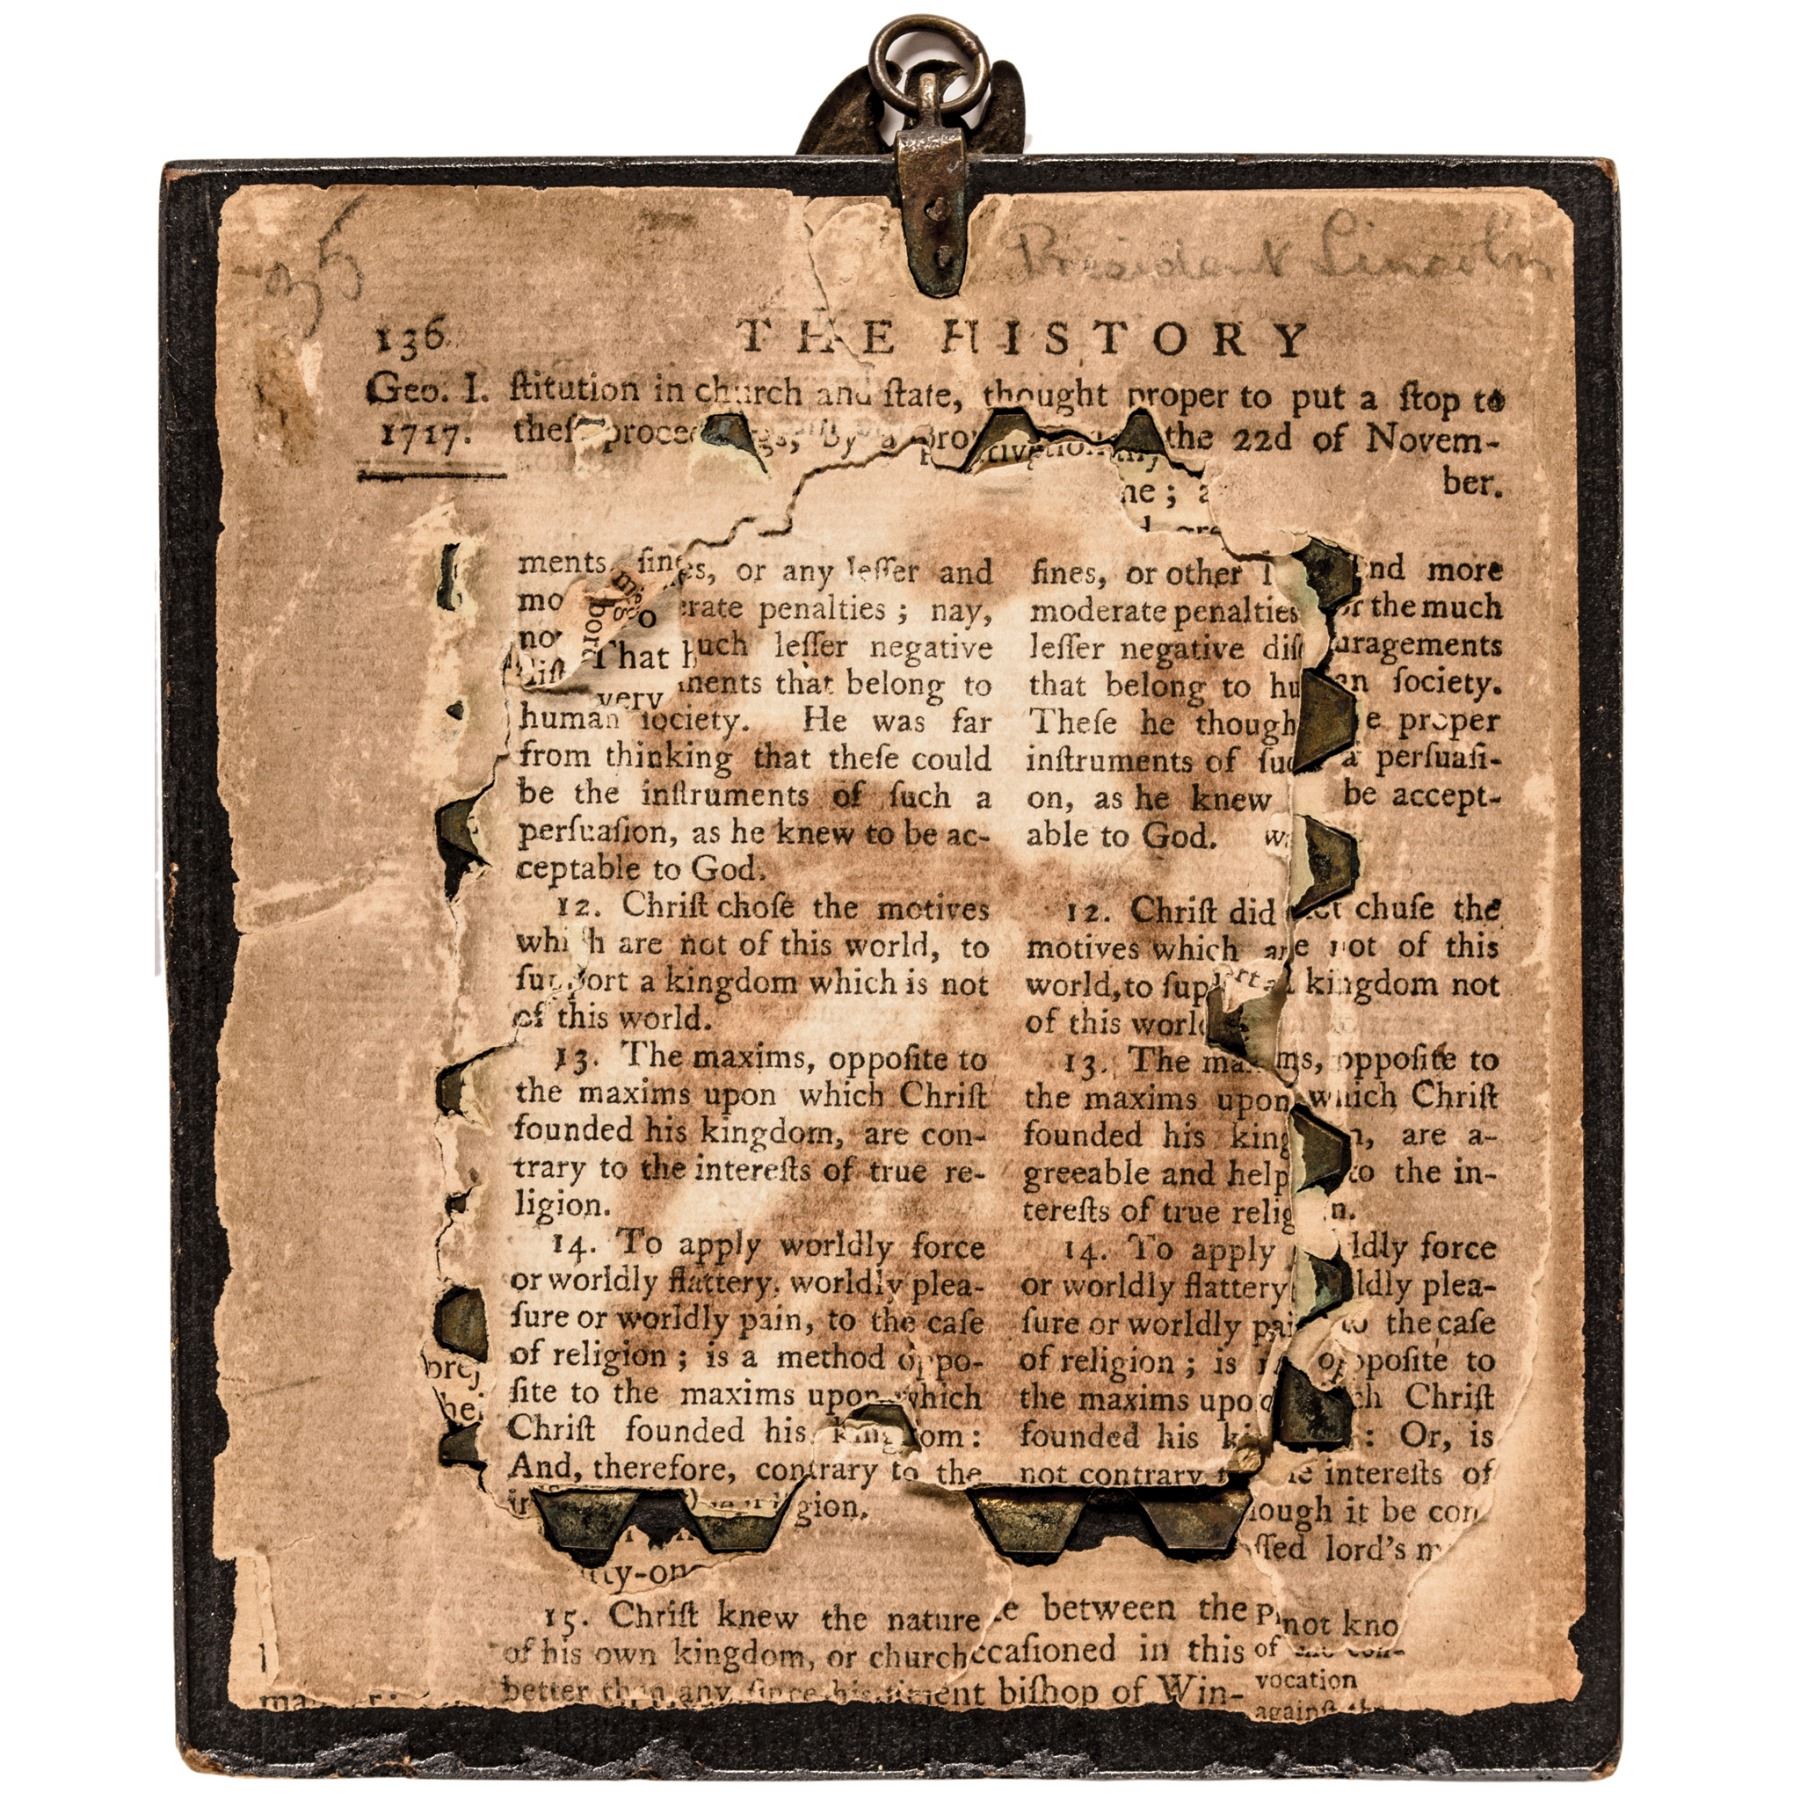 35
President Lincoln
136
THE HISTORY
Geo. I. ſtitution in church and ſtate, thought proper to put a ſtop to
1717. the 22d of Novem-
ber.
ne ;
ments fines, or any leſſer and
penalties ; nay,
leſſer negative
That
very
that belong to
human ſociety. He was far
from thinking that theſe could
be the inſtruments of ſuch a
perſuaſion, as he knew to be ac-
ceptable to God.
12. Chriſt choſe the motives
which are not of this world, to
ſupport a kingdom which is not
of this world.
13. The maxims, oppoſite to
the maxims upon which Chriſt
founded his kingdom, are con-
trary to the intereſts of true re-
ligion.
14. To apply worldly force
or worldly flattery, worldly plea-
ſure or worldly pain, to the caſe
of religion ; is a method oppo-
ſite to the maxims upon which
Chriſt founded his kingdom:
And, therefore, contrary to the
gion.
fines, or other and more
moderate penalties or the much
leſſer negative diſcouragements
that belong to human ſociety.
Theſe he thought the proper
inſtruments of ſuch a perſuaſi-
on, as he knew be accept-
able to God.
12. Chriſt did not chuſe the
motives which are not of this
world, to ſupport a kingdom not
of this world
13. The maxims, oppoſite to
the maxims upon which Chriſt
founded his kingdom, are a-
greeable and help to the in-
tereſts of true religion.
14. To apply worldly force
or worldly flattery worldly plea-
ſure or worldly pain to the caſe
of religion ; is not oppoſite to
the maxims upon which Chriſt
founded his : Or, is
not contrary intereſts of
though it be con
lord's
15. Chriſt knew the nature
of his own kingdom, or church
better than any ſince his
between the
ccaſioned in this
biſhop of Win-
not kno
of the con-
vocation
againſt the